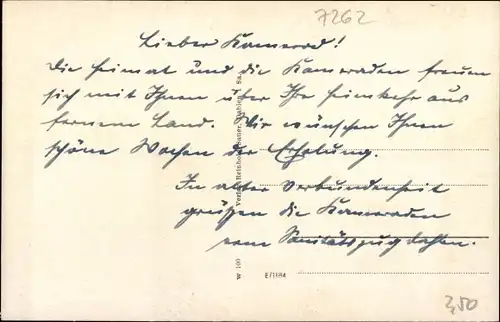 7262
Lieber Kamerad!
Die Heimat und die Kameraden freuen
sich mit Ihnen über Ihre Heimkehr aus
fernem Land. Wir wünschen Ihnen
schöne Wochen der Erholung.
In alter Verbundenheit
grüßen die Kameraden
vom Sanitätszug Dahlen.
W 100
E/1184
2,50